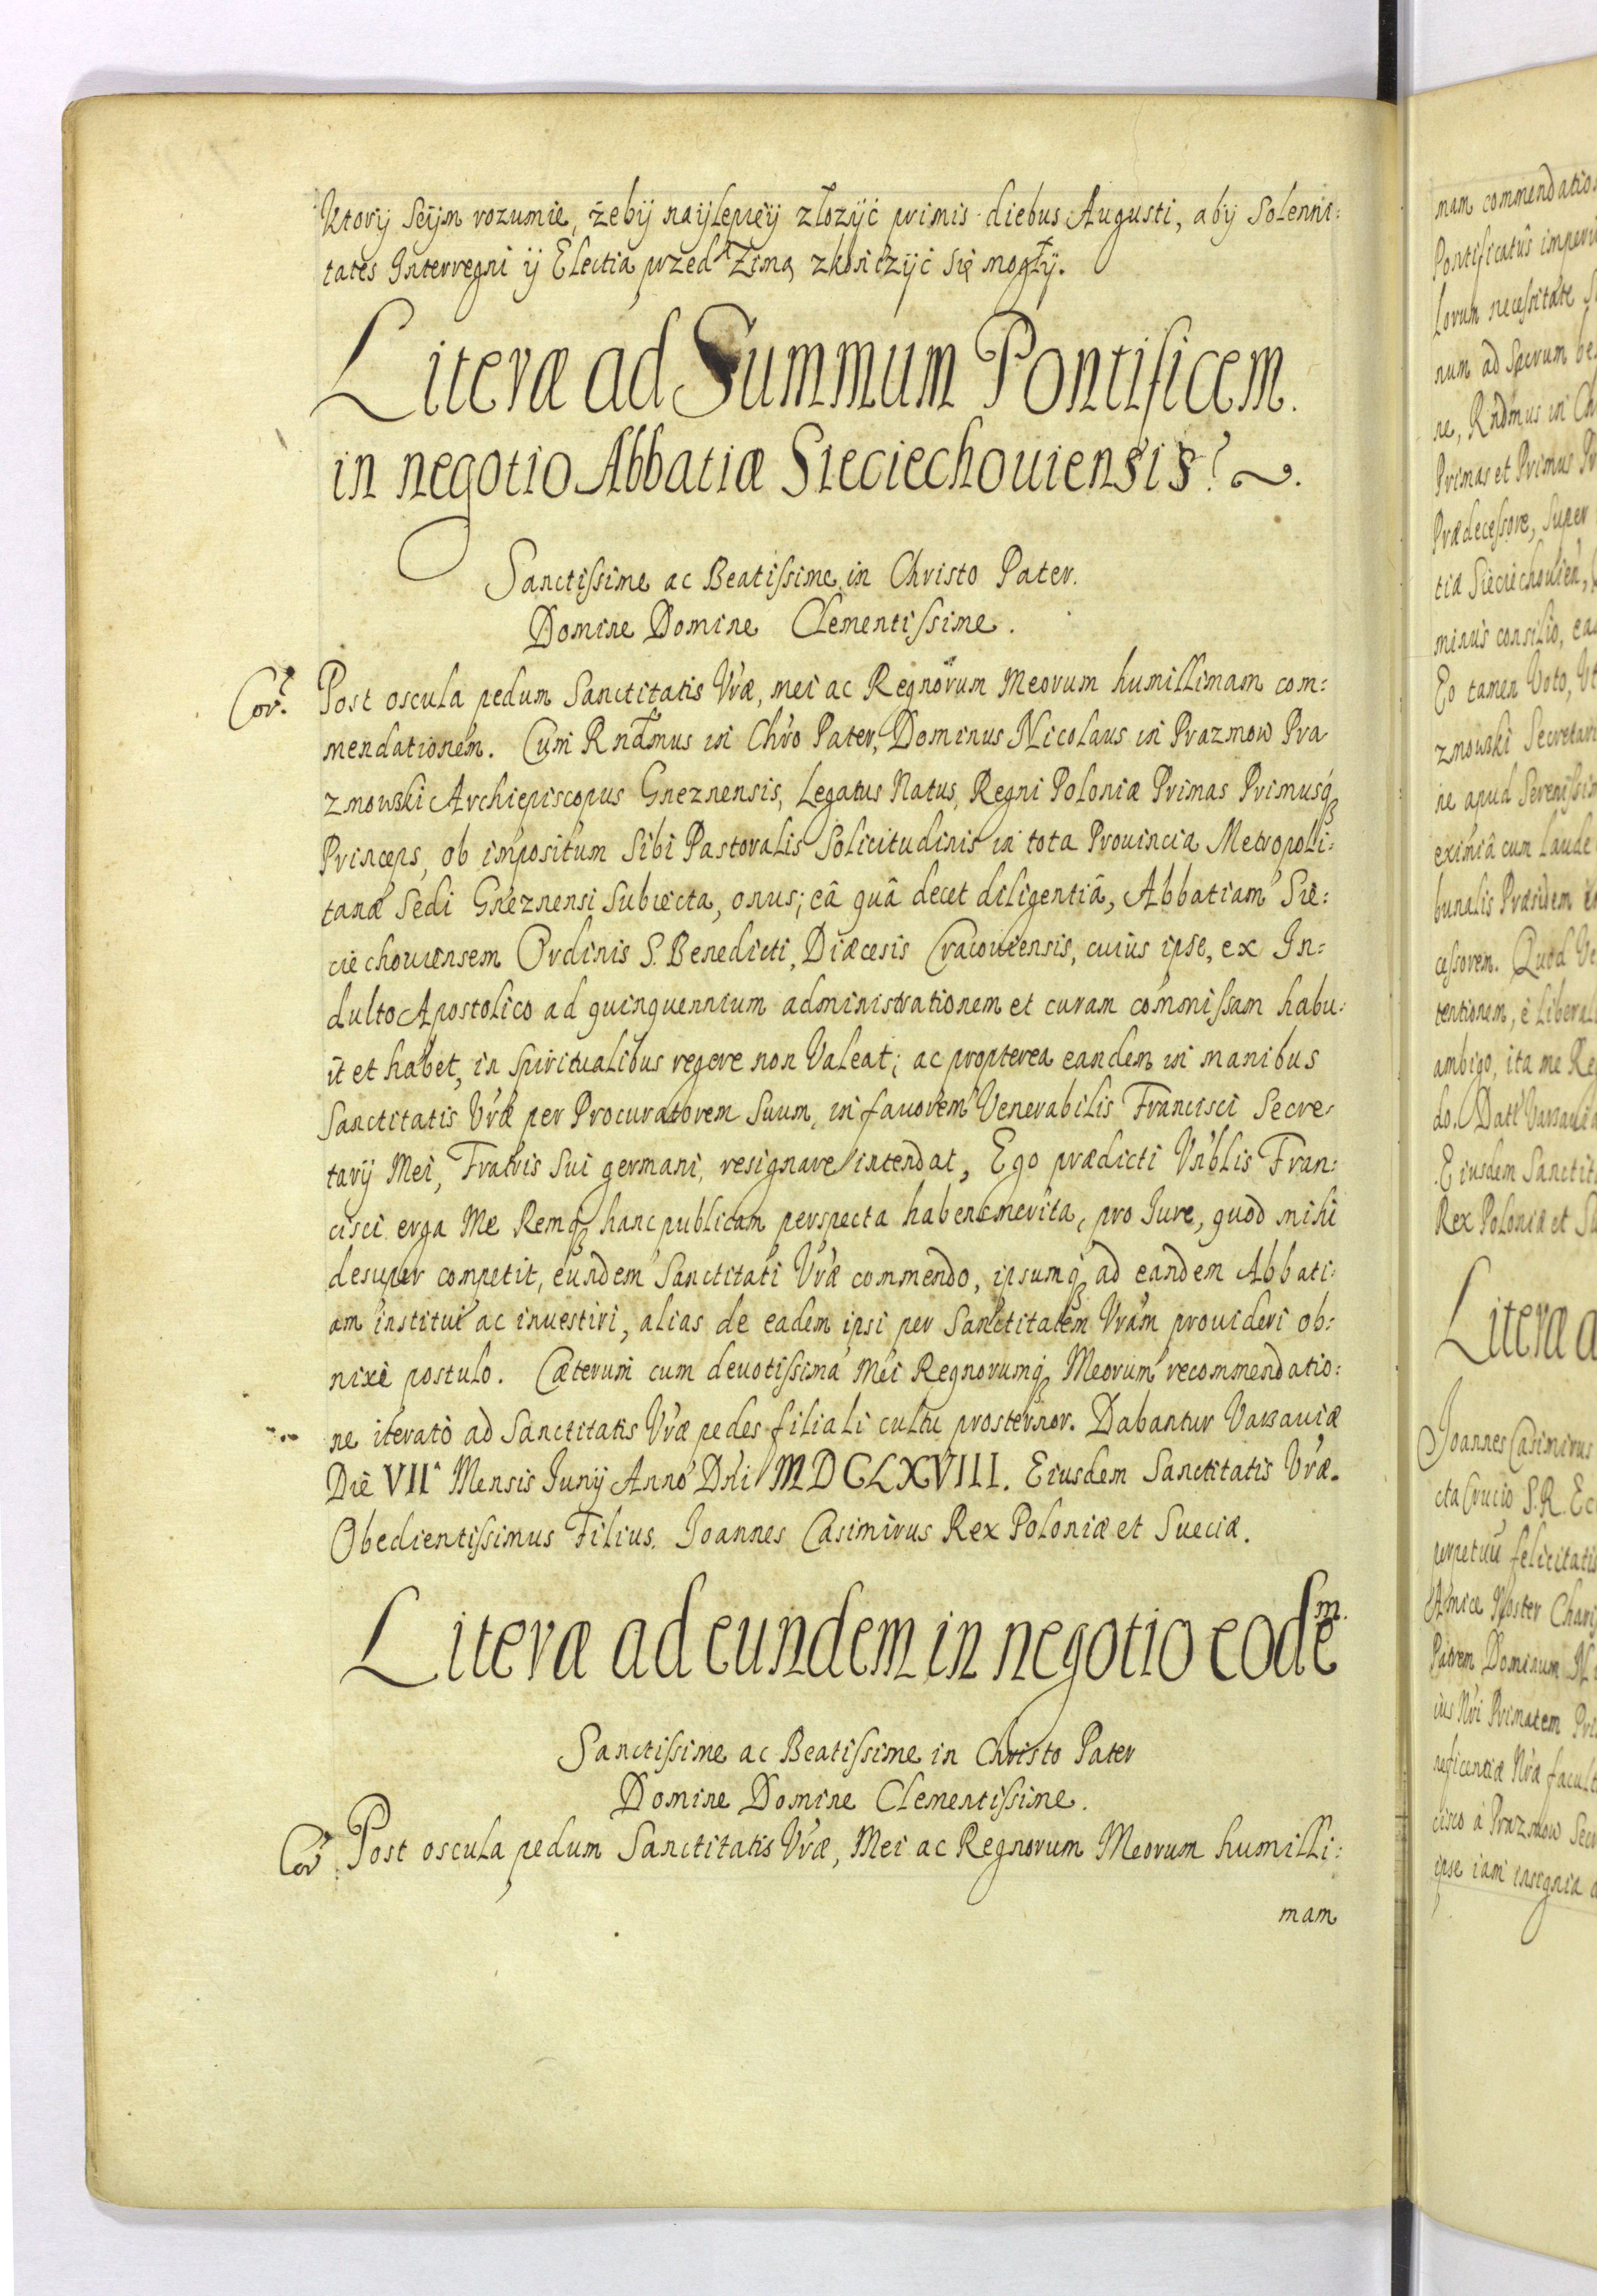 Ktorÿ Seÿm rozumie, żebÿ naÿlepieÿ złozÿć primis diebus Augusti, abÿ Solenni:
tates Interregni ÿ Electia przed Zimą zkończÿć się mogłÿ.
Literæ ad Summum Pontificem.
in negotio Abbatiæ Sieciechouiensis.
Sanctissime ac Beatissime in Christo Pater.
Domine Domine Clementissime.
Cor. Post oscula pedum Sanctitatis Vræ, mei ac Regnorum Meorum humillimam com:
mendationem. Cum Rndmus in Chro Pater, Dominus Nicolaus in Prazmow Pra
zmowski Archiepiscopus Gneznensis, Legatus Natus, Regni Poloniæ Primas Primusq
Princeps, ob impositum Sibi Pastoralis Solicitudinis in tota Prouincia Metropoli:
tanæ Sedi Gneznensi Subiecta, onus; eâ quâ decet diligentiâ, Abbatiam Sie:
ciechouiensem Ordinis S. Benedicti, Diæcesis Cracouiensis, cuius ipse, ex In:
dulto Apostolico ad quinquennium administrationem et curam commissam habu:
it et habet, in Spiritualibus regere non Valeat; ac propterea eandem in manibus
Sanctitatis Vræ per Procuratorem Suum, in fauorem Venerabilis Francisci Secre:
tarÿ Mei, Fratris Sui germani, resignare intendat, Ego prædicti Vnblis Fran:
cisci erga Me Remq hanc publicam perspecta habens merita, pro Iure, quod mihi
desuper competit, eundem Sanctitati Vræ commendo, ipsumq ad eandem Abbati:
am institui ac inuestiri, alias de eadem ipsi per Sanctitatem Vram prouideri ob:
nixè postulo. Cæterum cum deuotissima Mei Regnorumq Meorum recommendatio:
ne iterato ad Sanctitatis Vræ pedes filiali cultu prosternor. Dabantur Varsauiæ
Die VII Mensis Iunÿ Anno Dni MDCLXVIII. Eiusdem Sanctitatis Vræ.
Obedientissimus Filius. Ioannes Casimirus Rex Poloniæ et Sueciæ.
Literæ ad eundem in negotio eodem.
Sanctissime ac Beatissime in Christo Pater
Domine Domine Clementissime.
Cor Post oscula pedum Sanctitatis Vræ, Mei ac Regnorum Meorum humilli:
mam
mam commendatio
Pontificatûs imperi
lorum necessitate
num ad Sacrum be
ne, Rndmus in Ch
Primas et Primus Pr
Prædecessore, Super
tiæ Sieciechouien,
minus consilio, ea
Eo tamen Voto, Vt
zmowski Secretari
ne apud Serenissim
eximiâ cum laude
bunalis Præsidem
cessorem. Quod Ve
tentionem, è liberali
ambigo, ita me Re
do. Datt Varsauia
Eiusdem Sanctit
Rex Poloniæ et Su
Literæ a
Ioannes Casimirus
cta Crucis, S. R. Ec
perpetuu felicitatis
Amice Noster Chari
Patrem Dominum Ni
ius Nri Primatem Pri
neficentiæ Nræ facult
cisco à Prazmow Secr
ipse iam insignia a